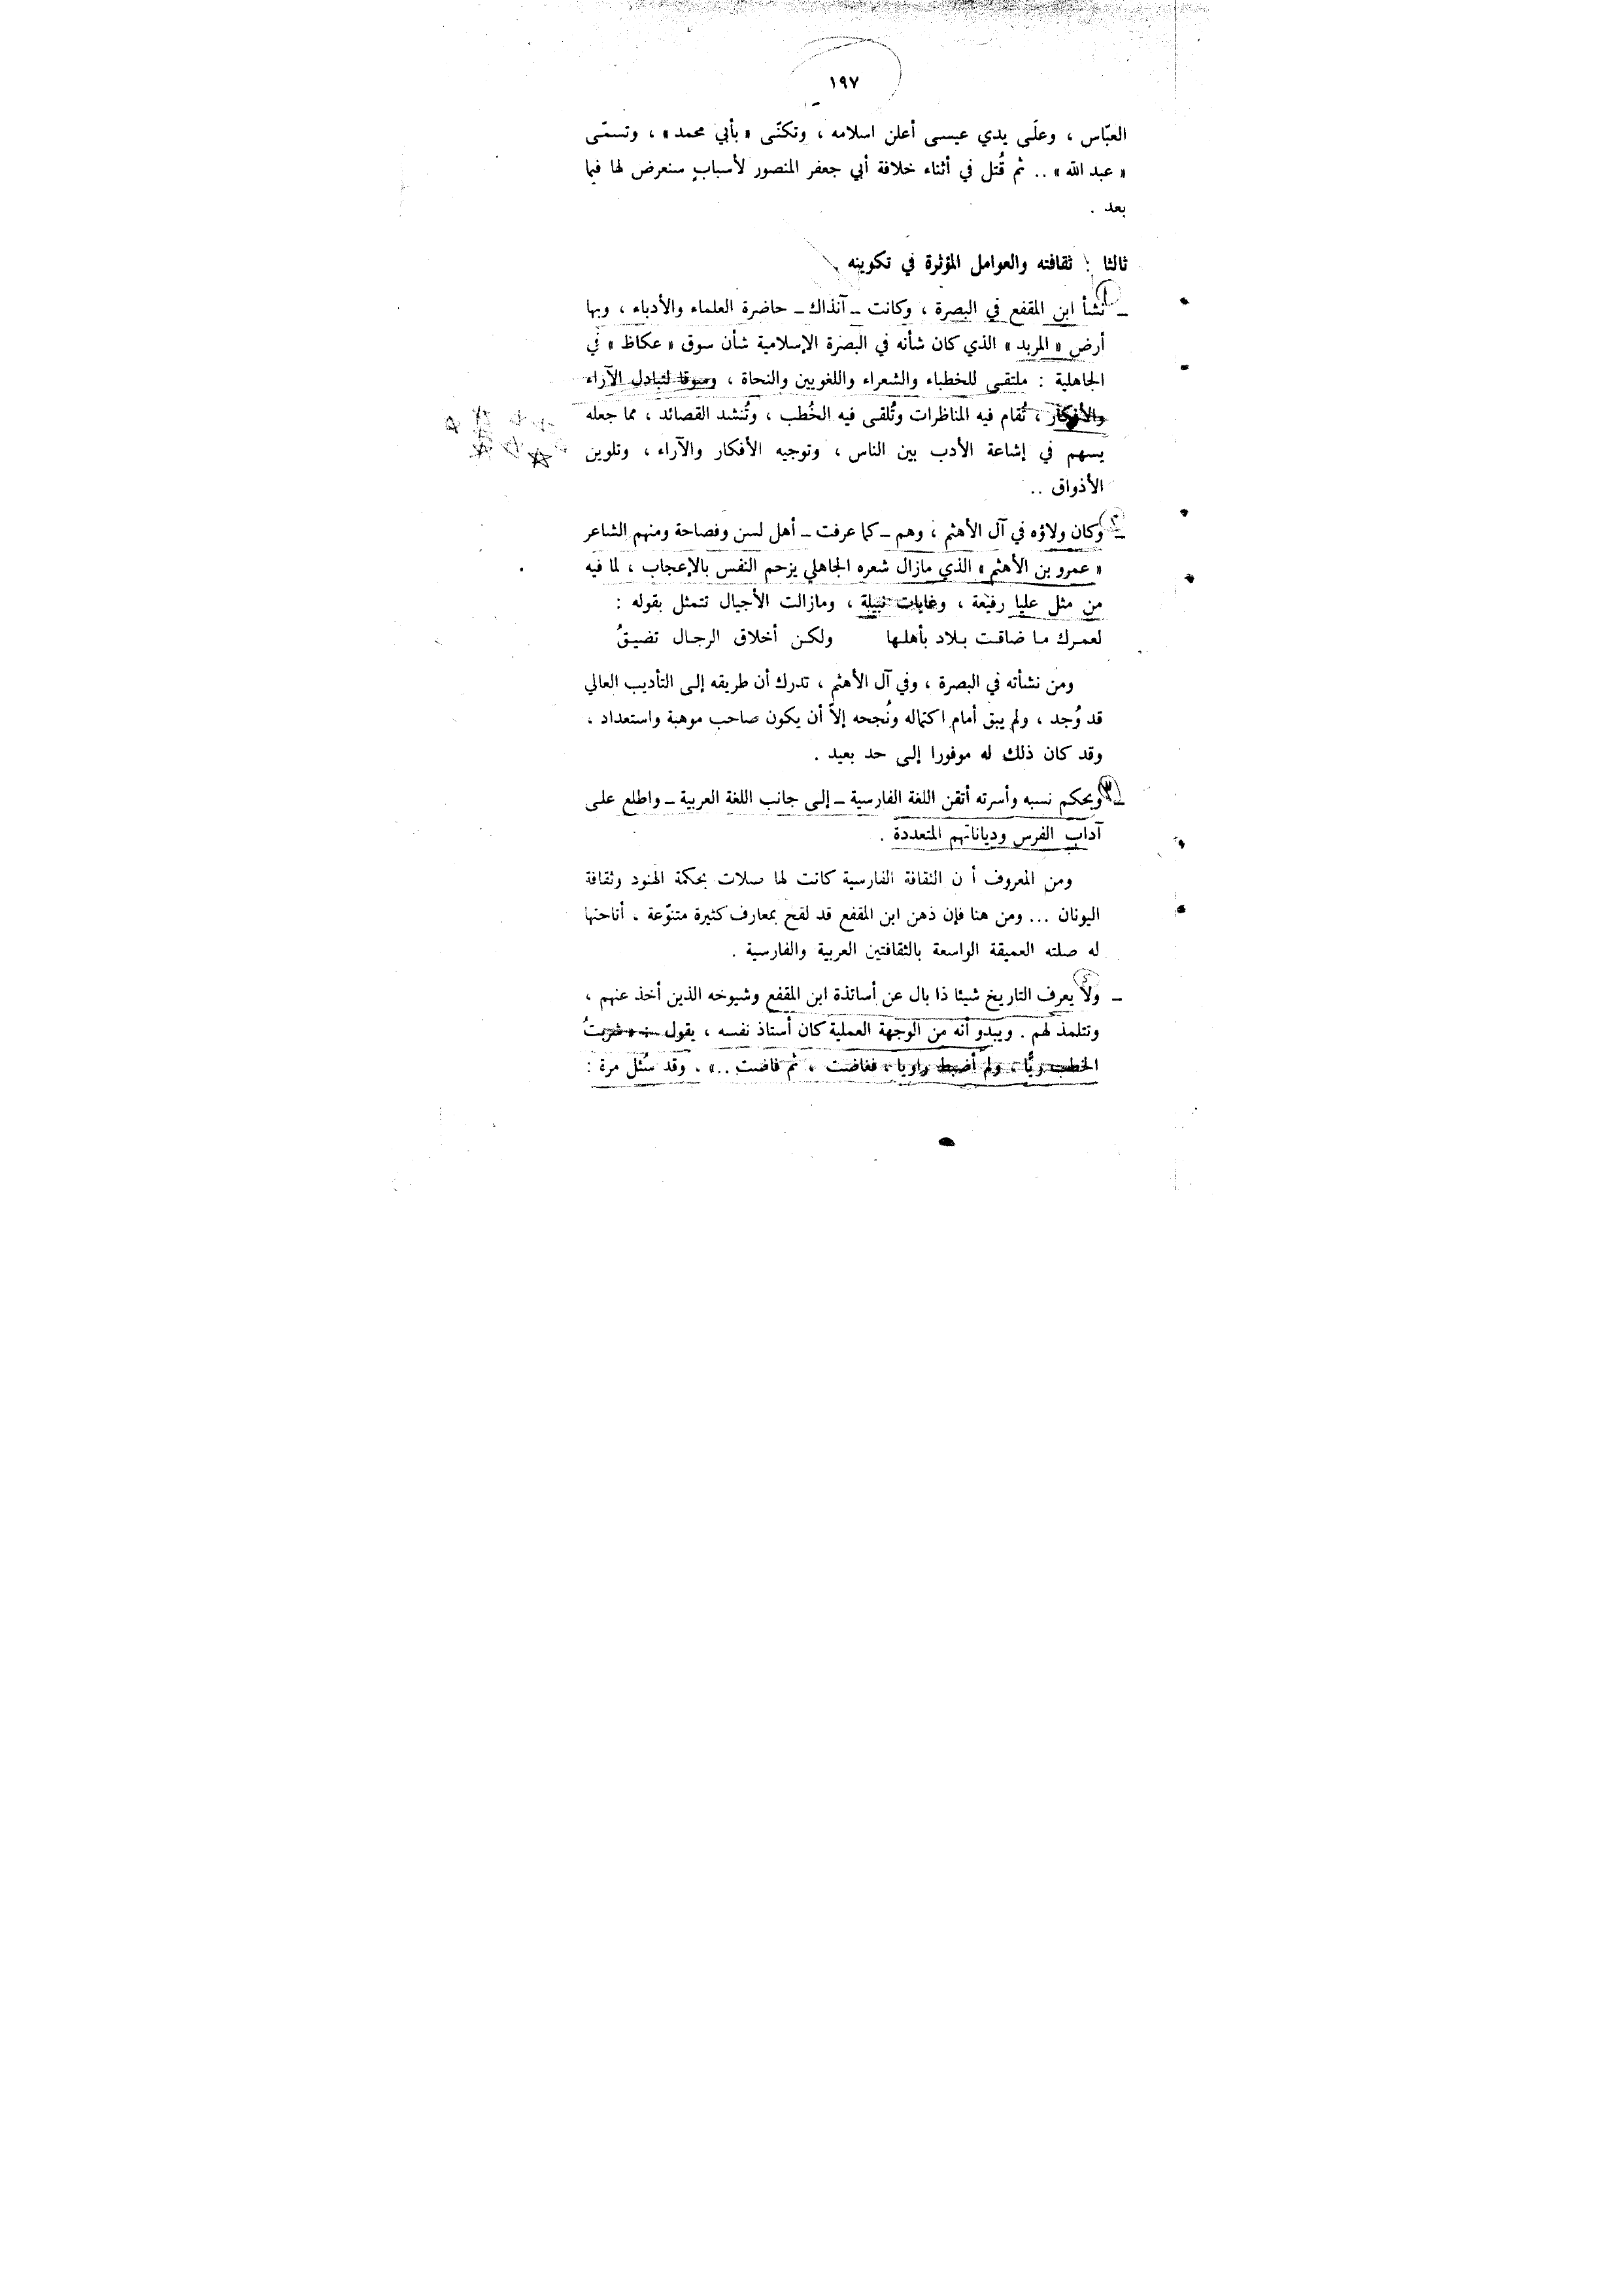 ١٩٧
العبّاس ، وعلَى يدي عيسى أعلن اسلامه ، وتكنّى « بأبي محمد » ، وتسمّى
« عبد الله » .. ثم قُتل في أثناء خلافة أبي جعفر المنصور لأسبابٍ سنعرض لها فيما
بعد .
ثالثا : ثقافته والعوامل المؤثرة في تكوينه
ـ نشأ ابن المقفع في البصرة ، وكانت ـ آنذاك ـ حاضرة العلماء والأدباء ، وبها
أرض « المربد » الذي كان شأنه في البصرة الإسلامية شأن سوق « عكاظ » في
الجاهلية : ملتقى للخطباء والشعراء واللغويين والنحاة ، وسوقا لتبادل الآراء
والأفكار ، تُقام فيه المناظرات وتُلقى فيه الخُطب ، وتُنشد القصائد ، مما جعله
يسهم في إشاعة الأدب بين الناس ، وتوجيه الأفكار والآراء ، وتلوين
الأذواق ..
ـ وكان ولاؤه في آل الأهتم ، وهم ـ كما عرفت ـ أهل لسن وفصاحة ومنهم الشاعر
« عمرو بن الأهتم » الذي مازال شعره الجاهلي يزحم النفس بالإعجاب ، لما فيه
من مثل عليا رفيعة ، وغايات نبيلة ، ومازالت الأجيال تتمثل بقوله :
لعمرك ما ضاقت بلاد بأهلها ولكن أخلاق الرجال تضيقُ
ومن نشأته في البصرة ، وفي آل الأهتم ، تدرك أن طريقه إلى التأديب العالي
قد وُجد ، ولم يبق أمام اكتماله ونُجحه إلاّ أن يكون صاحب موهبة واستعداد ،
وقد كان ذلك له موفورا إلى حد بعيد .
ـ ٣ وبحكم نسبه وأسرته أتقن اللغة الفارسية ـ إلى جانب اللغة العربية ـ واطلع على
آداب الفرس ودياناتهم المتعددة .
ومن المعروف أ ن الثقافة الفارسية كانت لها صلات بحكمة الهنود وثقافة
اليونان ... ومن هنا فإن ذهن ابن المقفع قد لقح بمعارف كثيرة متنوّعة ، أتاحتها
له صلته العميقة الواسعة بالثقافتين العربية والفارسية .
ـ ولا يعرف التاريخ شيئا ذا بال عن أساتذة ابن المقفع وشيوخه الذين أخذ عنهم ،
وتتلمذ لهم . ويبدو أنه من الوجهة العملية كان أستاذ نفسه ، يقول : « شربتُ
الخطب ريًّا ، ولم أضبط راويا ، فغاضت ، ثم فاضت .. » . وقد سُئل مرة :